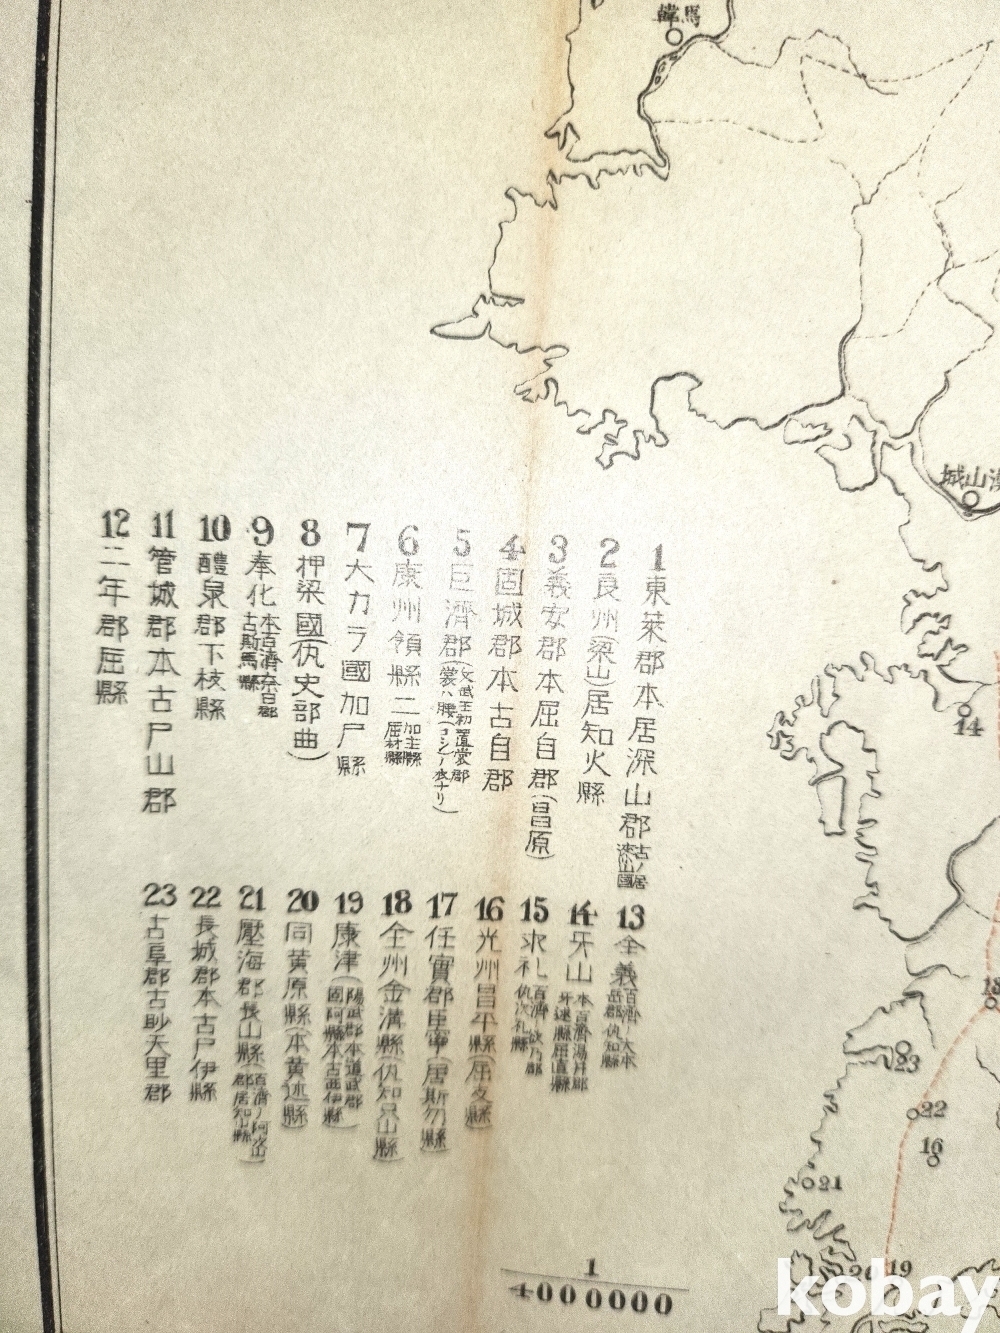 馬韓
漢山城
1 東萊郡本居深山郡 古ノ居漆山國
2 良州(梁山)居知火縣
3 義安郡本屈自郡(昌原)
4 固城郡本古自郡
5 巨濟郡(文武王初置裳郡 裳ハ腰(コシ)ノ衣ナリ)
6 康州領縣二 加主縣 屈村縣
7 大カラ國加尸縣
8 押梁國(仇史部曲)
9 奉化 本百濟奈已郡 古斯馬縣
10 醴泉郡下枝縣
11 管城郡本古尸山郡
12 二年郡屈縣
13 全義 百濟ノ大木岳郡仇知縣
14 牙山 本百濟湯井郡 牙述縣屈直縣
15 求礼 百濟欲乃郡 仇次礼縣
16 光州昌平縣(屈支縣)
17 任實郡
18 全州金溝縣(仇知只山縣)
19 康津(陽武郡本道武郡 固阿縣本古西伊縣)
20 同黄原縣(本黄述縣)
21 壓海郡長山縣
22 長城郡本古尸伊縣
23 古阜郡古眇夫里郡
14
18
23
22
16
21
20
19
1
4000000
kobay